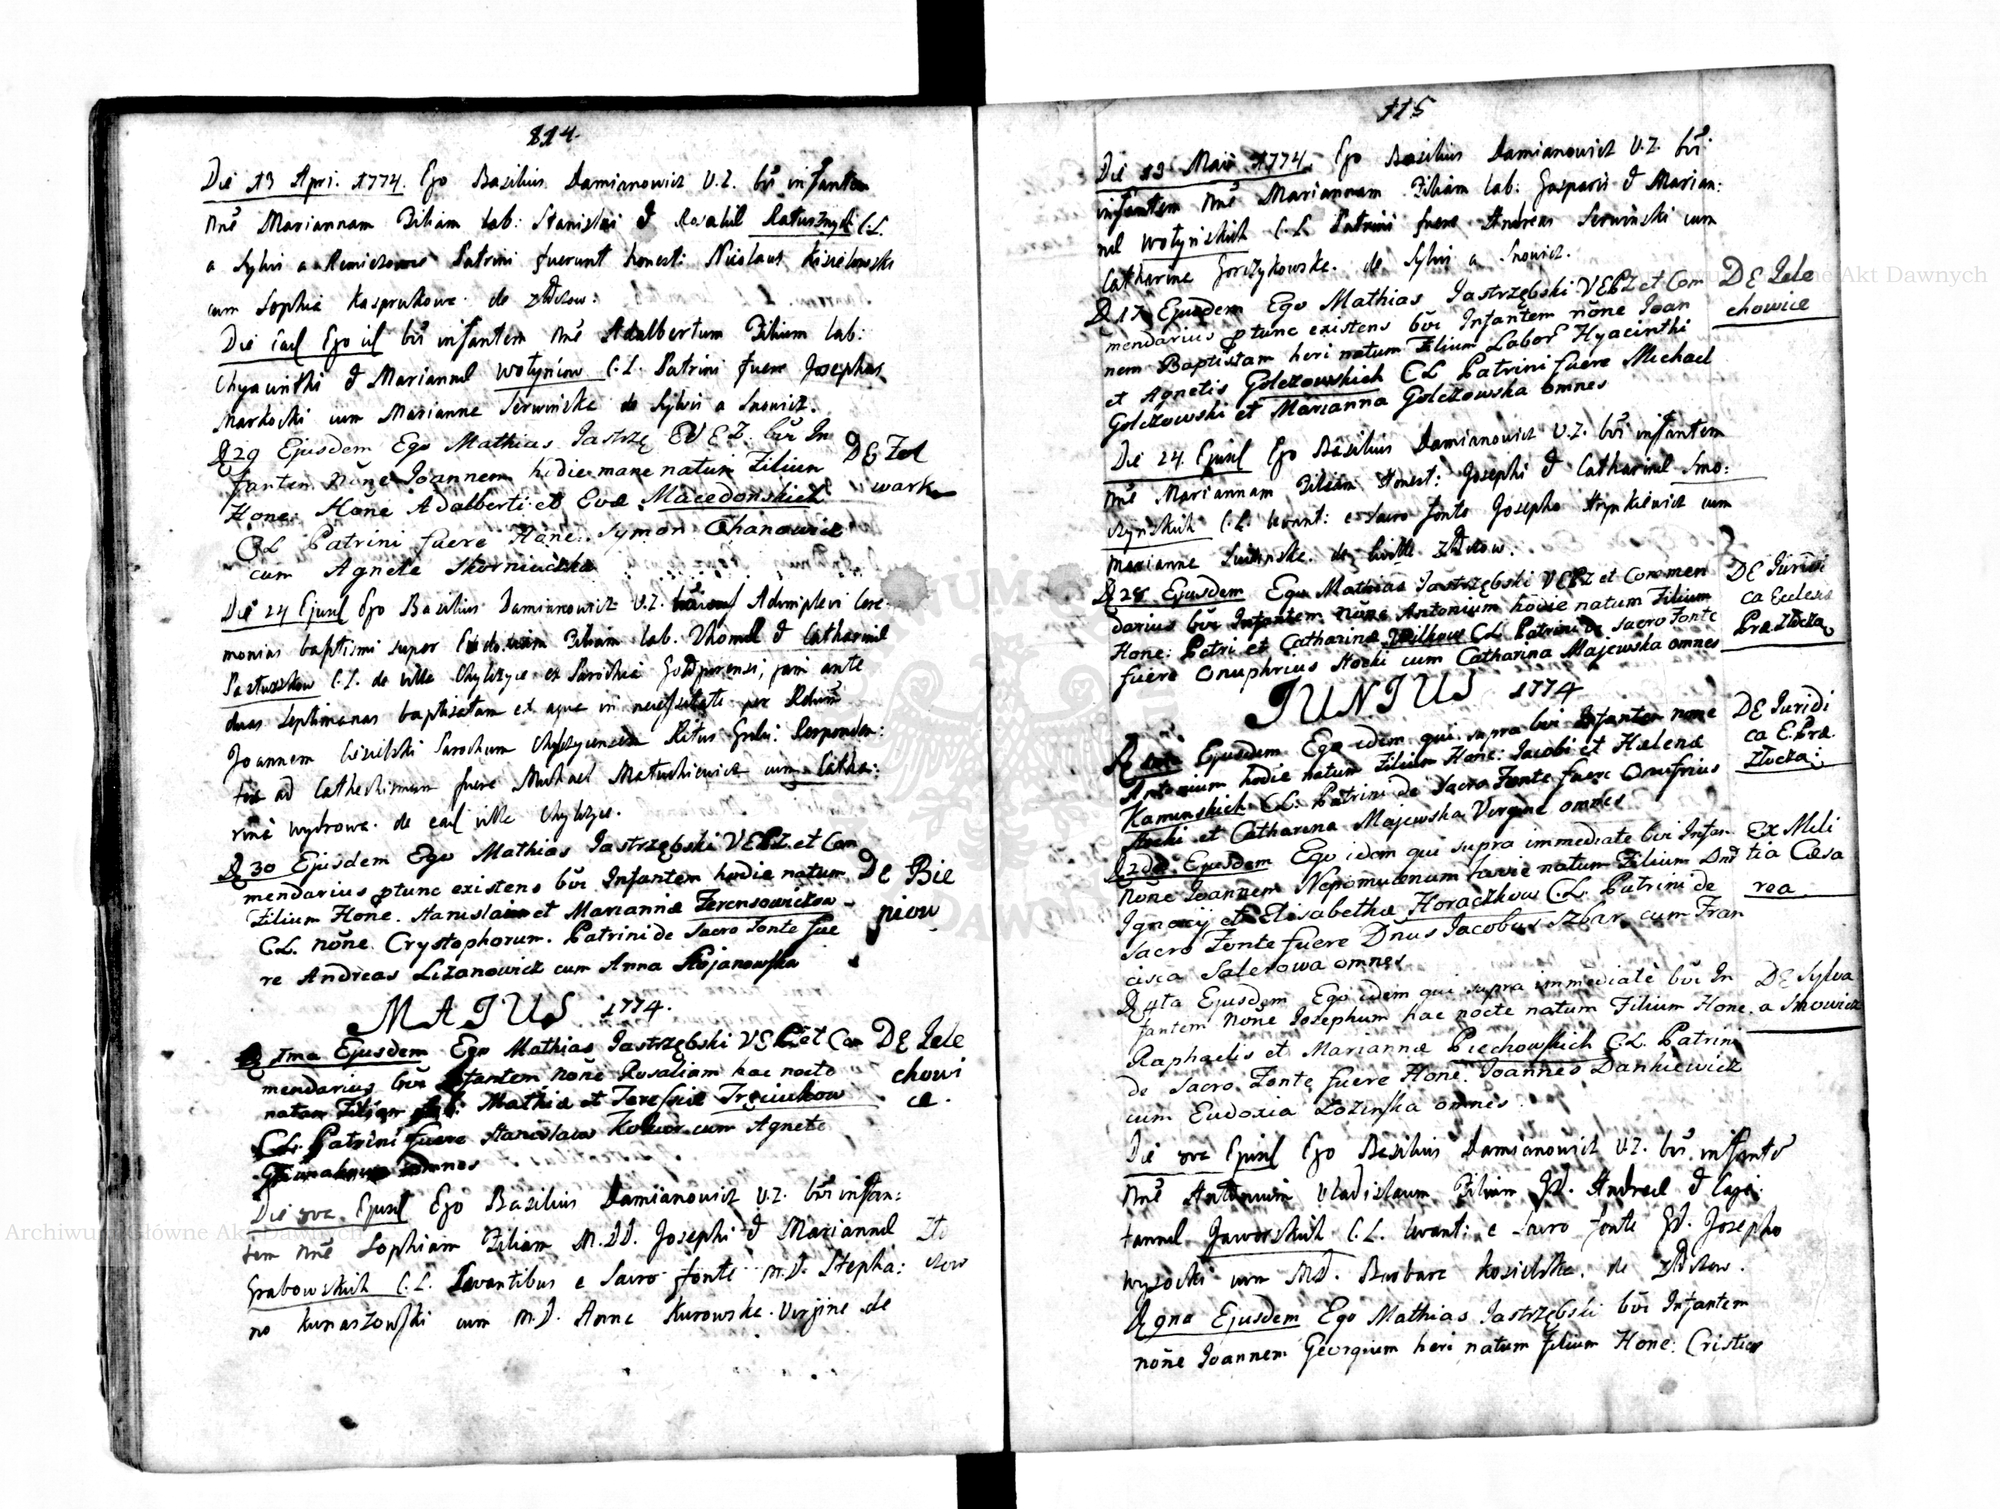 814.
Die 13 Apri. 1774. Ego Basilius Damianowicz V.Z. bũ infantem
nñe Mariannam Filiam Lab: Stanislai & Rosaliæ Ratusznych C.L.
a Sylvis a Remiczowie Patrini fuerunt honest: Nicolaus Kisielewski
cum Sophia Kasprukowa. de
Die Ead Ego id bũ infantem nñe Adalbertum Filium Lab:
Chyacinthi & Mariannæ Wołyńców C.L. Patrini fuere Josephus
Markocki cum Marianna Serwińska de Sylvis a Snowicz.
D 29 Ejusdem Ego Mathias Jastrzę VEZ. bũi In
fantem Nõne Joannem hodie mane natum Filium
Hone: Hone Adalberti et Evæ Macedońskich
CL Patrini fuere Hone: Symon Ohanowicz
cum Agnete Skorniacka
DE Fol
wark
Die 24 Ejusd Ego Basilius Damianowicz V.Z. Adimplevi Cere-
monias baptismi super Eudoxiam Filiam Lab. Thomæ & Catharinæ
Pastuszkow C.L. de villa Chylczyce ex Parochia jam ante
duas septimanas baptisatam ex aqua in necessitate per Rdum
Joannem Parochum Chylczycensem Ritus Græci: Responden:
tes ad Cathechismum fuere Michael Matuskiewicz cum Catha:
rina Wydrowa. de ead villa Chylczyce.
D 30 Ejusdem Ego Mathias Jastrzębski VEPZ et Com
mendarius ptunc existens bũi Infantem hodie natum
Filium Hone. Stanislai et Mariannæ Ferensowiczow
CL. nõne. Crystophorum. Patrini de Sacro Fonte fue
re Andreas Lizanowicz cum Anna Stojanowska
De Bie
niow
MAJUS 1774.
D 1ma Ejusdem Ego Mathias Jastrzębski VEPZ et Com
mendarius bũi Infantem Nõne Rosaliam hac nocte
natam Filiam Mathiæ et Teresiæ
CL. Patrini fuere Stanislaus cum Agnete
omnes
DE Jele
chowi
ce.
Die 3va Ejusd Ego Basilius Damianowicz V.Z. bũi infan:
tem nñe Sophiam Filiam M.DD. Josephi & Mariannæ
Grabowskich C.L. Levantibus e Sacro fonte M.D. Stepha:
no Kunaszowski cum M.D. Anna Kurowska Virgine de
Zło
czow
115
Die 13 Maii 1774. Ego Basilius Damianowicz V.Z. bũi
infantem nñe Mariannam Filiam Lab: Gasparis & Marian:
næ Wołyńskich C.L. Patrini fuere Andreas Serwinski cum
Catharina Gorczykowska. de Sylvis a Snowicz.
D 17 Ejusdem Ego Mathias Jastrzębski VEPZ et Com
mendarius ptunc existens bũi Infantem nõne Joan
nem Baptistam heri natum Filium Labor Hyacinthi
et Agnetis Golczowskich CL Patrini fuere Michael
Golczowski et Marianna Golczowska omnes
DE Jele
chowice
Die 24 Ejusd Ego Basilius Damianowicz V.Z. bũi infantem
nñe Mariannam Filiam Honest: Josephi & Catharinæ Smo:
czyńskich C.L. levant: e Sacro fonte Josepho Hrynkiewicz cum
Marianna
D 28 Ejusdem Ego Mathias Jastrzębski VEPZ et Commen
darius bũi Infantem nõne Antonium hodie natum Filium
Hone: Petri et Catharinæ Wilkow CL Patrini de Sacro Fonte
fuere Onuphrius Hocki cum Catharina Majewska omnes
DE Juridi
ca Ecclesiæ
Præ Złocka
IUNIUS 1774
D Ejusdem Ego idem qui supra bũi Infantem none
Antonium hodie natum Filium Hone: Jacobi et Helenæ
Kaminskich CL. Patrini de Sacro Fonte fuere Onufrius
Hocki et Catharina Majewska Virgine omnes
DE Juridi
ca E. Præ
Złocka:
D 2da Ejusdem Ego idem qui supra immediate bũi Infan
nõne Joannem Nepomucenum natum Filium Dni
Ignacij et Elisabethæ Horaczkow CL. Patrini de
Sacro Fonte fuere Dnus Jacobus Szbar cum Fran
cisca Salerowa omnes
Ex Mili
tia Cæsa
rea
D 4ta Ejusdem Ego idem qui supra immediatè bũi In
fantem Nõne Josephum hac nocte natum Filium Hone.
Raphaelis et Mariannæ Piechowskich CL. Patrini
de Sacro Fonte fuere Hone. Joannes Dankiewicz
cum Eudoxia Łozinska omnes
DE Sylva
a Snowicz
Die 5va Ejusd Ego Basilius Damianowicz V.Z. bũi infantẽ
nñe Antonium Vladislaum Filium GD. Andreæ & Caje:
tannæ Jaworskich C.L. levant: e Sacro fonte GD. Josepho
Wysocki cum MD. Barbara Kosielska. de
D 9na Ejusdem Ego Mathias Jastrzębski bũi Infantem
nõne Joannem Georgium heri natum Filium Hone: Cristian
Archiwum Główne Akt Dawnych